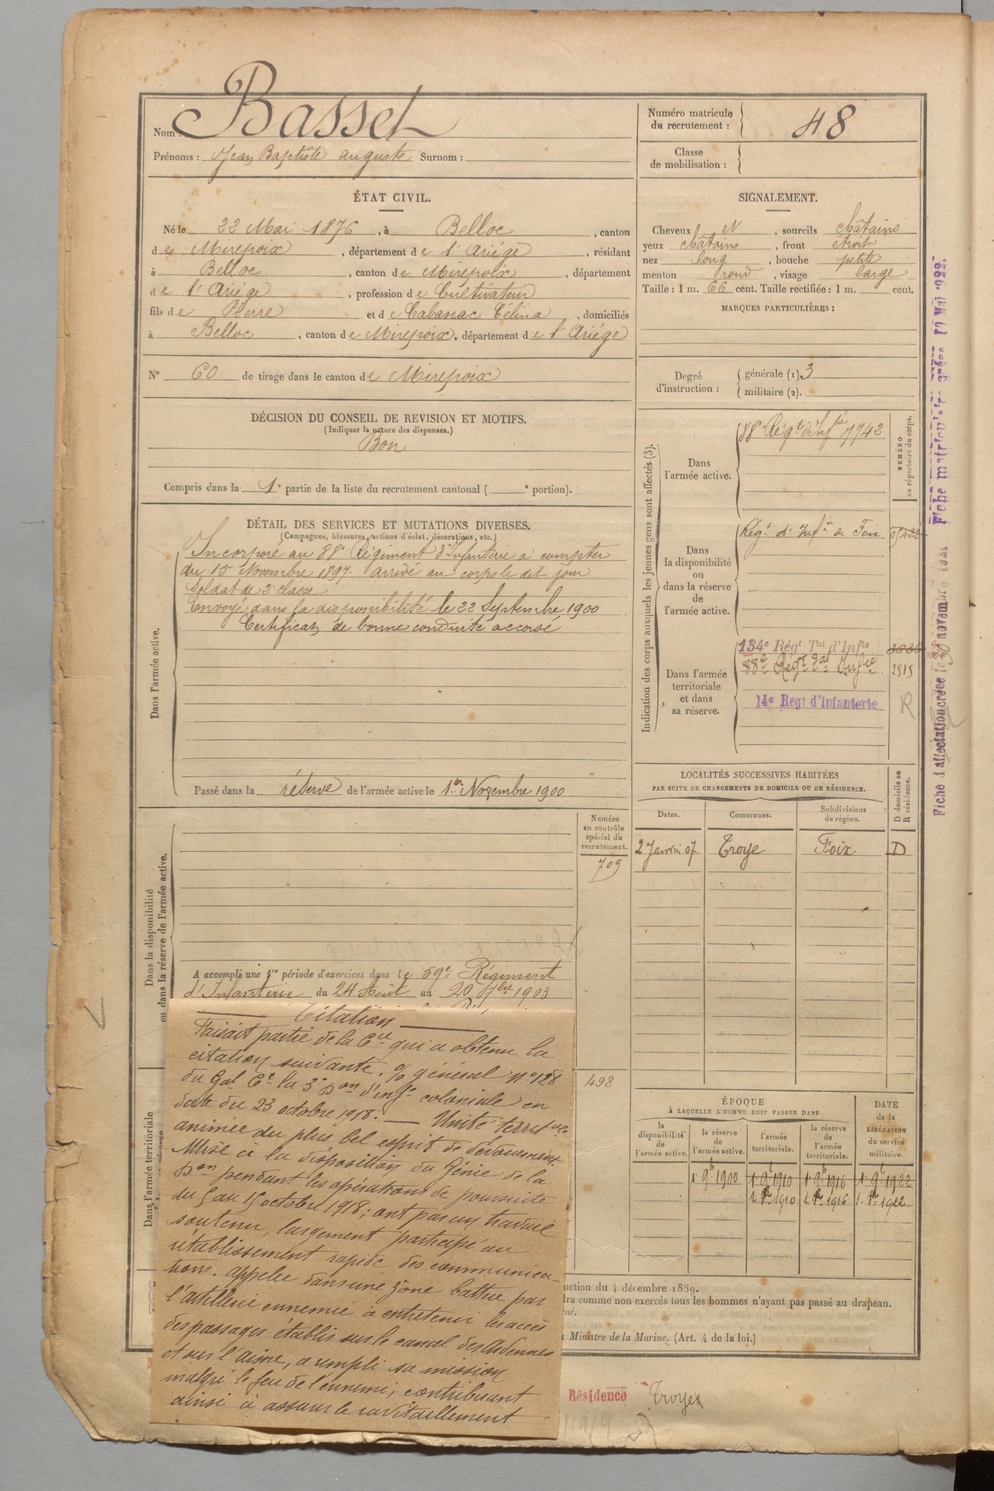 Nom : Basset
Prénoms : Jean Baptiste Auguste Surnom :
Numéro matricule du recrutement : 48
Classe de mobilisation :
ÉTAT CIVIL.
Né le 22 Mai 1876, à Belloc, canton
de Mirepoix, département de l'Ariége, résidant
à Belloc, canton de Mirepoix, département
de l'Ariége, profession de Cultivateur
fils de Pierre et de Cabanac Célina, domiciliés
à Belloc, canton de Mirepoix, département de l'Ariége
N° 60 de tirage dans le canton de Mirepoix
DÉCISION DU CONSEIL DE REVISION ET MOTIFS.
(Indiquer la nature des dispenses.)
Bon
Compris dans la 1e partie de la liste du recrutement cantonal ( e portion).
SIGNALEMENT.
Cheveux N, sourcils châtains
yeux châtains, front étroit
nez long, bouche petite
menton rond, visage large
Taille : 1 m. 66 cent. Taille rectifiée : 1 m. cent.
MARQUES PARTICULIÈRES :
Degré d'instruction : générale (1) 3
militaire (2).
DÉTAIL DES SERVICES ET MUTATIONS DIVERSES.
(Campagnes, blessures, actions d'éclat, décorations, etc.)
Dans l'armée active.
Incorporé au 88e Régiment d'Infanterie à compter
du 15 Novembre 1897 arrivé au corps le dit jour
Soldat de 2e classe
Envoyé dans la disponibilité le 22 Septembre 1900
Certificat de bonne conduite accordé
Passé dans la réserve de l'armée active le 1er Novembre 1900
Indication des corps auxquels les jeunes gens sont affectés (3).
NUMÉRO au répertoire du corps.
Dans l'armée active.
88e Régt d'Infie 7742
Dans la disponibilité ou dans la réserve de l'armée active.
Régt d'Infie de Foix
Dans l'armée territoriale et dans sa réserve.
134e Régt Tal d'Infie
88e Régt Infie 1515
14e Régt d'Infanterie
R
LOCALITÉS SUCCESSIVES HABITÉES
PAR SUITE DE CHANGEMENTS DE DOMICILE OU DE RÉSIDENCE.
Dates. Communes. Subdivisions de région. D domicile ou R résidence.
2 Janvier 07 Troye Foix D
Dans la disponibilité
ou dans la réserve de l'armée active.
Numéro au contrôle spécial du recrutement.
709
A accompli une 1re période d'exercices dans le 59e Régiment
d'Infanterie du 24 Août au 20 7bre 1903
Dans l'armée territoriale
498
Citation
Faisait partie de la Cie qui a obtenu la
citation suivante. O/ général n° 128
du Gal Ct la 3e Don d'infie coloniale en
date du 23 octobre 1918. Unité territle
animée du plus bel esprit de dévouement.
Mise à la disposition du Génie de la
Don pendant les opérations de poursuite
du 5 au 15 octobre 1918; ont par un travail
soutenu, largement participé au
rétablissement rapide des communica-
tions. Appelée dans une zône battue par
l'artillerie ennemie à entretenir les accès
des passages établis sur le canal des Ardennes
et sur l'Aisne, a rempli sa mission
malgré le feu de l'ennemi, contribuant
ainsi à assurer le ravitaillement
ÉPOQUE
À LAQUELLE L'HOMME DOIT PASSER DANS
la disponibilité de l'armée active. la réserve de l'armée active. l'armée territoriale. la réserve de l'armée territoriale. DATE de la LIBÉRATION du service militaire.
1 9b 1900 1 9b 1910 1 9b 1916 1 9b 1922
1. 8bre 1910 1. 8bre 1916 1. 8bre 1922
uction du 4 décembre 1889.
dra comme non exercés tous les hommes n'ayant pas passé au drapeau.
Ministre de la Marine. (Art. 4 de la loi.)
Résidence Troyes
Fiche d'affectation créée le 30 novembre
Fiche matriculaire créée 10 Mai 1922.